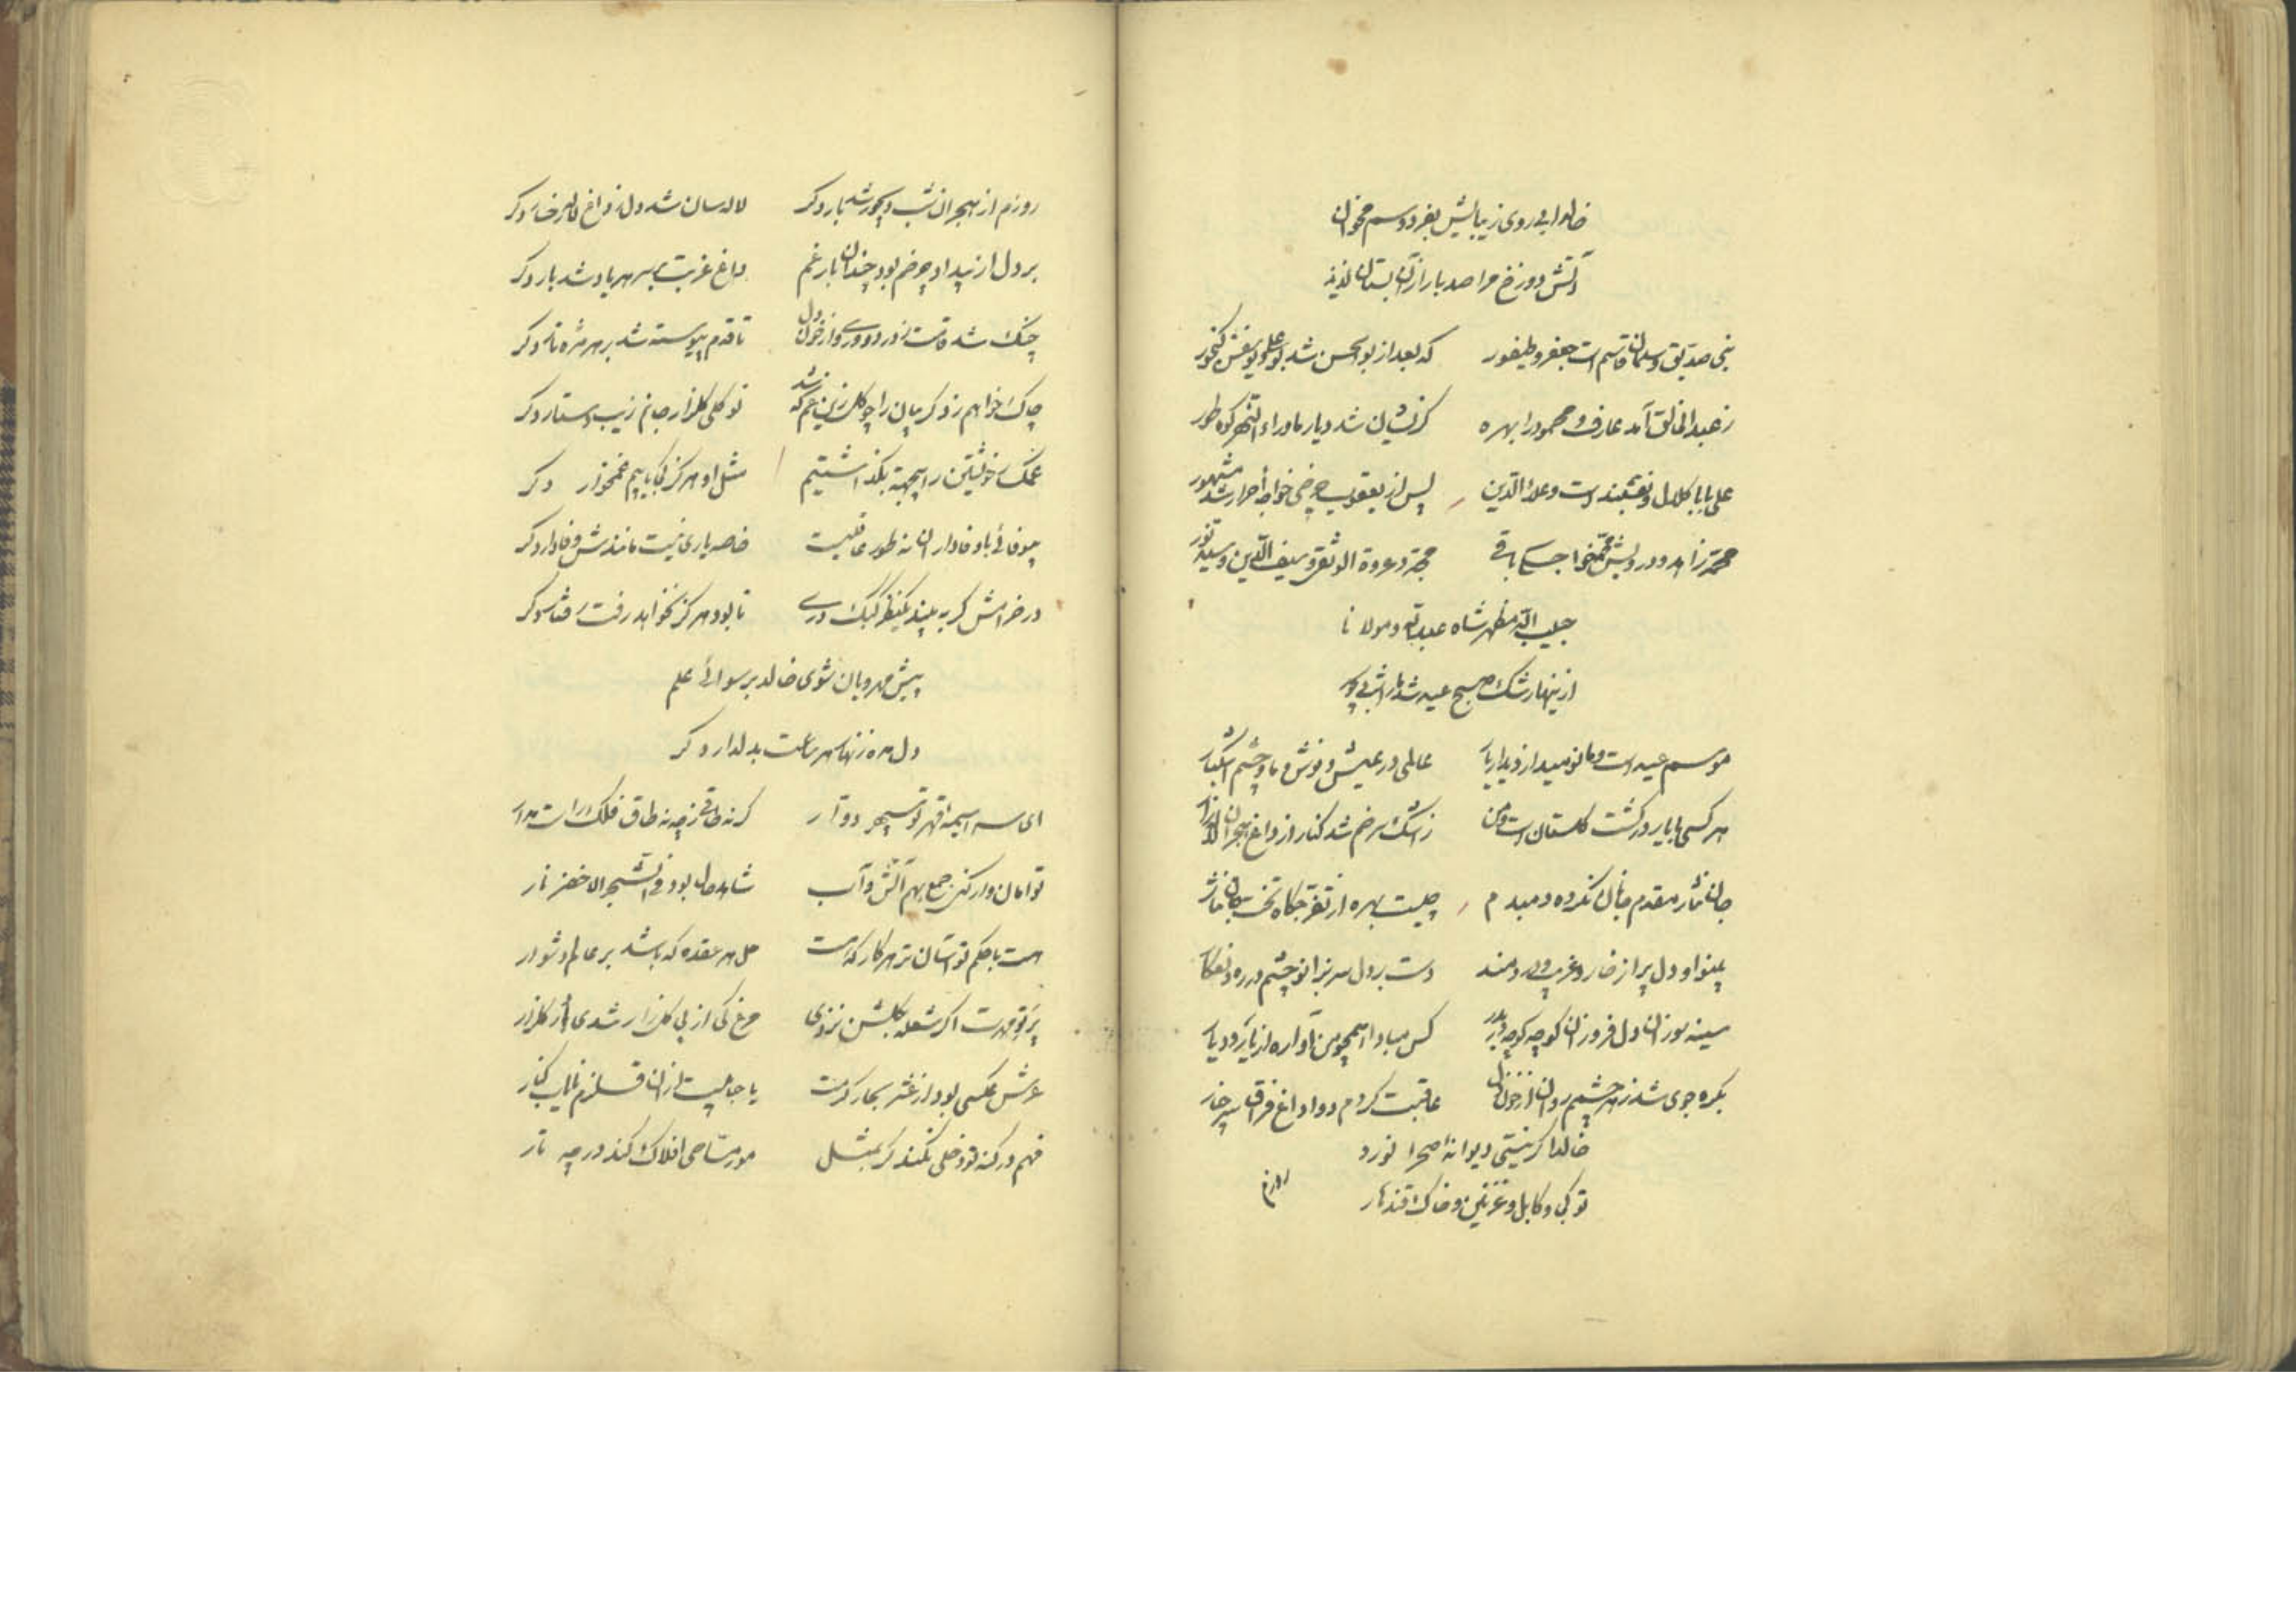 خالدا بی روی زیبایش بفردوسم مخوان
آتش دوزخ مرا صد بار ازآن بستان لذیذ
نبی صدیق و سلمان قاسم است جعفر و طیفور که بعد از بوالحسن شد بوعلی و یوسفش کنجور
ز عبدالخالق آمد عارف و محمود را بهره کزیشان شد دیار ماوراء النهر کوه طور
علی بابا کلال و نقشبند است و علاءالدین پس از یعقوب چرخی خواجه احرار شد مشهور
محمد زاهد و درویش محمد خواجکی باقی مجدد عروة الوثقی و سیف الدین و سید نور
حبیب الله مظهر شاه عبدالله و مولانا
ازینها رشک صبح عید شد ما را شب دیجور
موسم عید است و ما نومید از دیدار یار عالمی در عیش و نوش و ما و چشم اشکبار
هر کسی با یار در کشت کلستان است و من ز اشک سرخم شد کنار از داغ هجران لاله زار
جان نثار مقدم جانان نکرده دمبدم چیست بهره از تفرجکاه تخت
بینوا و دل پر از خار و غریب و دردمند دست بر دل سر بزانو چشم در ره دلفکار
سینه سوزان دل فروزان کوچه کوچه در بدر کس مبادا همچو من آواره از یار و دیار
بکره جوی شد ز هر چشمم روان از خون دل عاقبت کردم دوا داغ فراق سر چنار
خالدا کر نیستی دیوانه صحرا نورد
تو کی و کابل و غزنین و خاک قندهار
روزم
روزم از هجران شب دیجور شد بار دکر لاله سان شد دل ز داغ لاله رخسار دکر
بر دل از بیداد چرخم بود چندان بار غم داغ غربت بر سر هر بار شد بار دکر
چنک شد قامت ز درد دوری و از خون دل تا قدم پیوسته شد بر هر مژه تار دکر
چاک خواهم زد کریبان را چو کل زین غم که شد نو کلی کلزار جانم زیب دستار دکر
غمکسار خویشتن را بیجهة بکذاشتیم مثل او هرکز کجا یابیم غمخوار دکر
بیوفائی با وفاداران نه طور عاقلیست خاصه یاری نیست مانندش وفادار دکر
در خرامش کر به بیند یکنظر کبک دری تا بود هرکز نخواهد رفت رفتار دکر
پیش مهرویان شوی خالد برسوائی علم
دل مده زنهار هر ساعت بدلدار دکر
ای سراسیمه قهر تو سپهر دوار کرنه طاقی ز چه نه طاق فلک راست مدار
توامان داری کنی جمع بهم آتش و آب شاهد حال بود فی الشجر الاخضر نار
هست با حکم تو آسان تر هر کار که هست حل هر عقده که باشد بر عالم دشوار
پرتو مهرت اکر شعله بکلشن نزدی مرغ کی از پی کلزار شدی زار کلزار
عرش عکسی بود از عشر بحار کرمت یا حبابیست از ان قلزم نایاب کنار
فهم در کنه تو دخلی نکند کر بمثل مور مساحی افلاک کند در چه تار